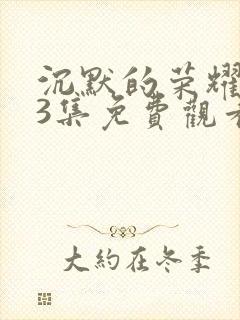 沉默的荣耀
3集免費觀看
大約在冬季